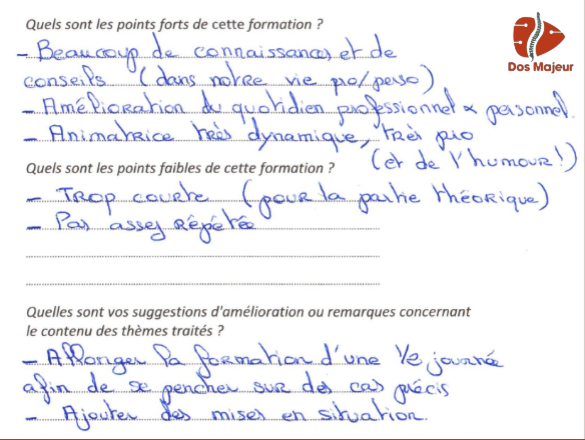 Quels sont les points forts de cette formation ?
Dos Majeur
- Beaucoup de connaissances et de
conseils (dans notre vie pro/perso)
- Amélioration du quotidien professionnel & personnel.
- Animatrice très dynamique, très pro
(et de l'humour !)
Quels sont les points faibles de cette formation ?
- Trop courte (pour la partie théorique)
- Pas assez répétée
Quelles sont vos suggestions d'amélioration ou remarques concernant
le contenu des thèmes traités ?
- Allonger la formation d'une 1/2 journée
afin de se pencher sur des cas précis
- Ajouter des mises en situation.